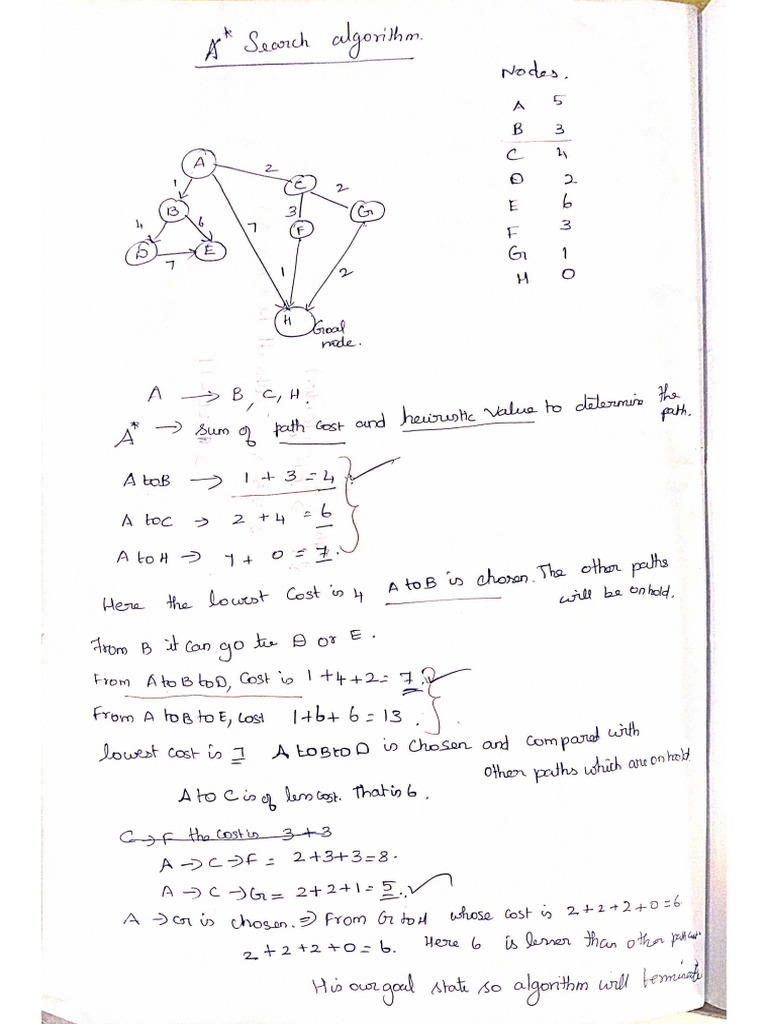 A* Search algorithm.
Nodes.
A 5
B 3
C 4
D 2
E 6
F 3
G 1
H 0
A
2
C
2
G
1
B
4
6
D
7
E
7
3
F
1
2
H
Goal node.
A → B, C, H.
A* → sum of path cost and heuristic value to determine the path.
A to B → 1 + 3 = 4
A to C → 2 + 4 = 6
A to H → 7 + 0 = 7.
Here the lowest cost is 4 A to B is chosen. The other paths will be on hold.
From B it can go to D or E.
From A to B to D, cost is 1+4+2= 7.
From A to B to E, cost 1+6+6=13.
lowest cost is 7 A to B to D is chosen and compared with other paths which are on hold.
A to C is of less cost. That is 6.
C → F the cost is 3+3
A → C → F = 2+3+3=8.
A → C → G = 2+2+1=5.
A → G is chosen. ⇒ From G to H whose cost is 2+2+2+0=6
2+2+2+0=6. Here 6 is lesser than other path cost
H is our goal state so algorithm will terminate